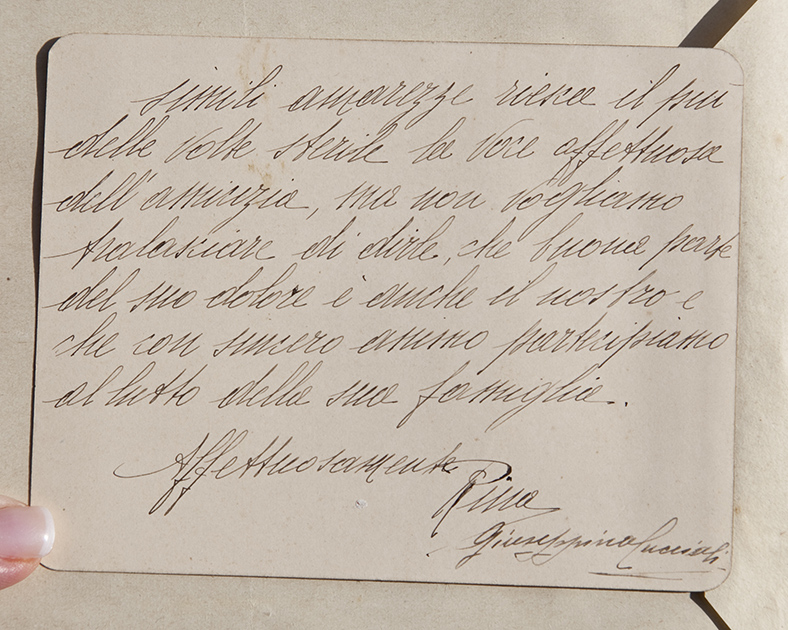 simili amarezze riesce il più
delle volte sterile la voce affettuosa
dell'amicizia, ma non vogliamo
tralasciare di dirle, che buona parte
del suo dolore è anche il nostro e
che con sincero animo partecipiamo
al lutto della sua famiglia.
Affettuosamente
Rina
Giuseppina